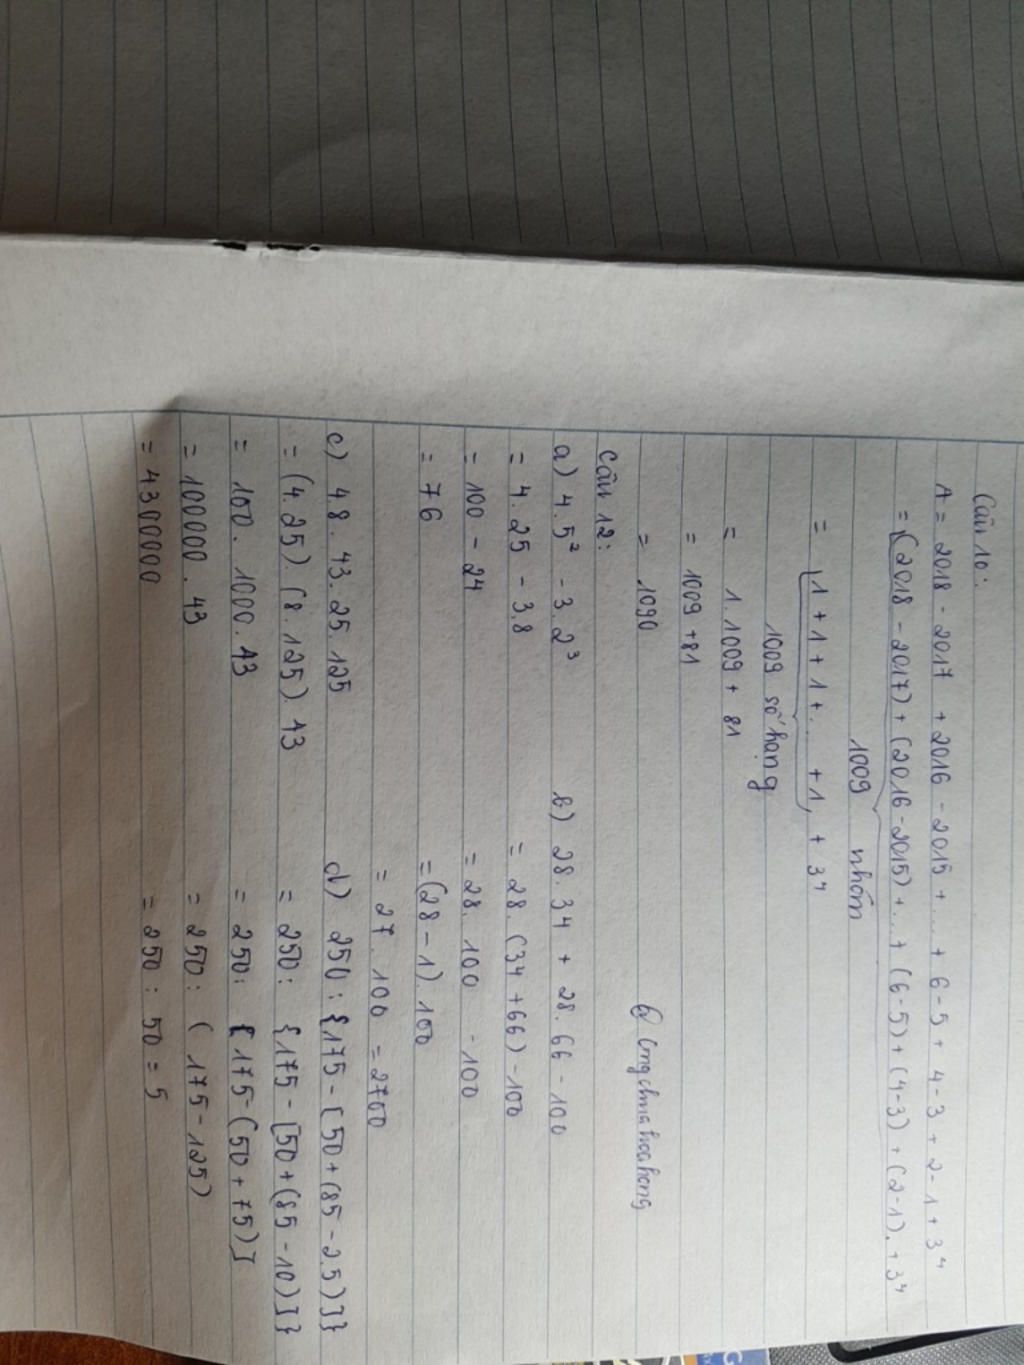 Câu 10:
A = 2018 - 2017 + 2016 - 2015 + ... + 6 - 5 + 4 - 3 + 2 - 1 + 3⁴
= (2018 - 2017) + (2016 - 2015) + ... + (6 - 5) + (4 - 3) + (2 - 1) + 3⁴
1009 nhóm
= 1 + 1 + 1 + ... + 1 + 3⁴
1009 số hạng
= 1.1009 + 81
= 1009 + 81
= 1090
@ Cmgchmahoahong
Câu 12:
a) 4.5² - 3.2³
= 4.25 - 3.8
= 100 - 24
= 76
b) 28.34 + 28.66 - 100
= 28.(34 + 66) - 100
= 28.100 - 100
= (28 - 1).100
= 27.100 = 2700
c) 4.8.43.25.125
= (4.25).(8.125).43
= 100.1000.43
= 100000.43
= 4300000
d) 250 : {175 - [50 + (85 - 2.5)]}
= 250 : {175 - [50 + (85 - 10)]}
= 250 : {175 - (50 + 75)]
= 250 : (175 - 125)
= 250 : 50 = 5